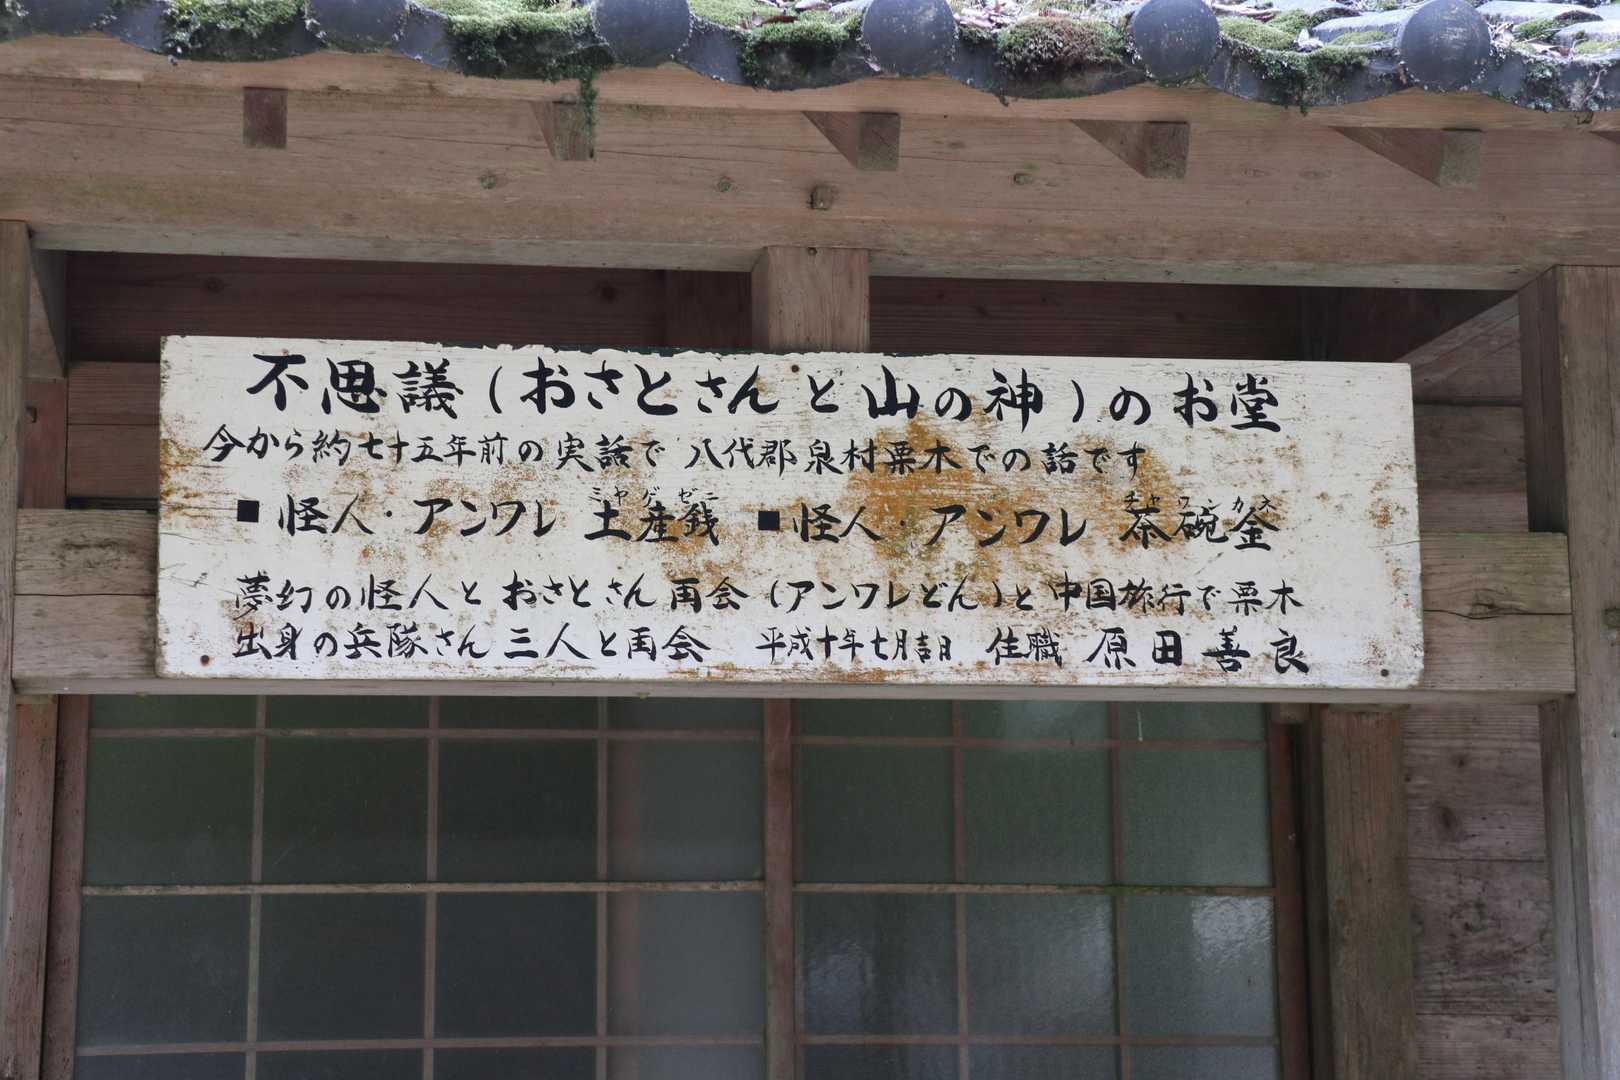 不思議(おさとさんと山の神)のお堂
今から約七十五年前の実話で 八代郡泉村栗木での話です
■怪人・アンワレ 土産銭 ■怪人・アンワレ 茶碗釜
ミヤゲゼニ チャワンカネ
夢幻の怪人とおさとさん再会(アンワレどん)と中国旅行で栗木
出身の兵隊さん三人と再会 平成十年七月吉日 住職 原田善良